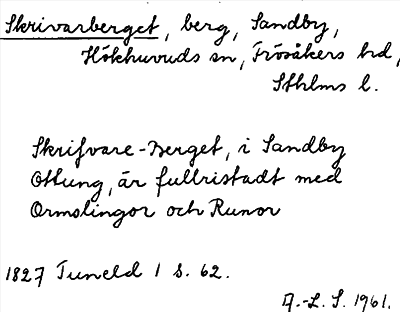 Skrivarberget, berg, Sandby,
Hökhuvuds sn, Frösåkers hd,
Sthlms l.
Skrifvare-Berget, i Sandby
Ottung, är fullristadt med
Ormslingor och Runor
1827 Tuneld 1 s. 62.
A.-L. S. 1961.